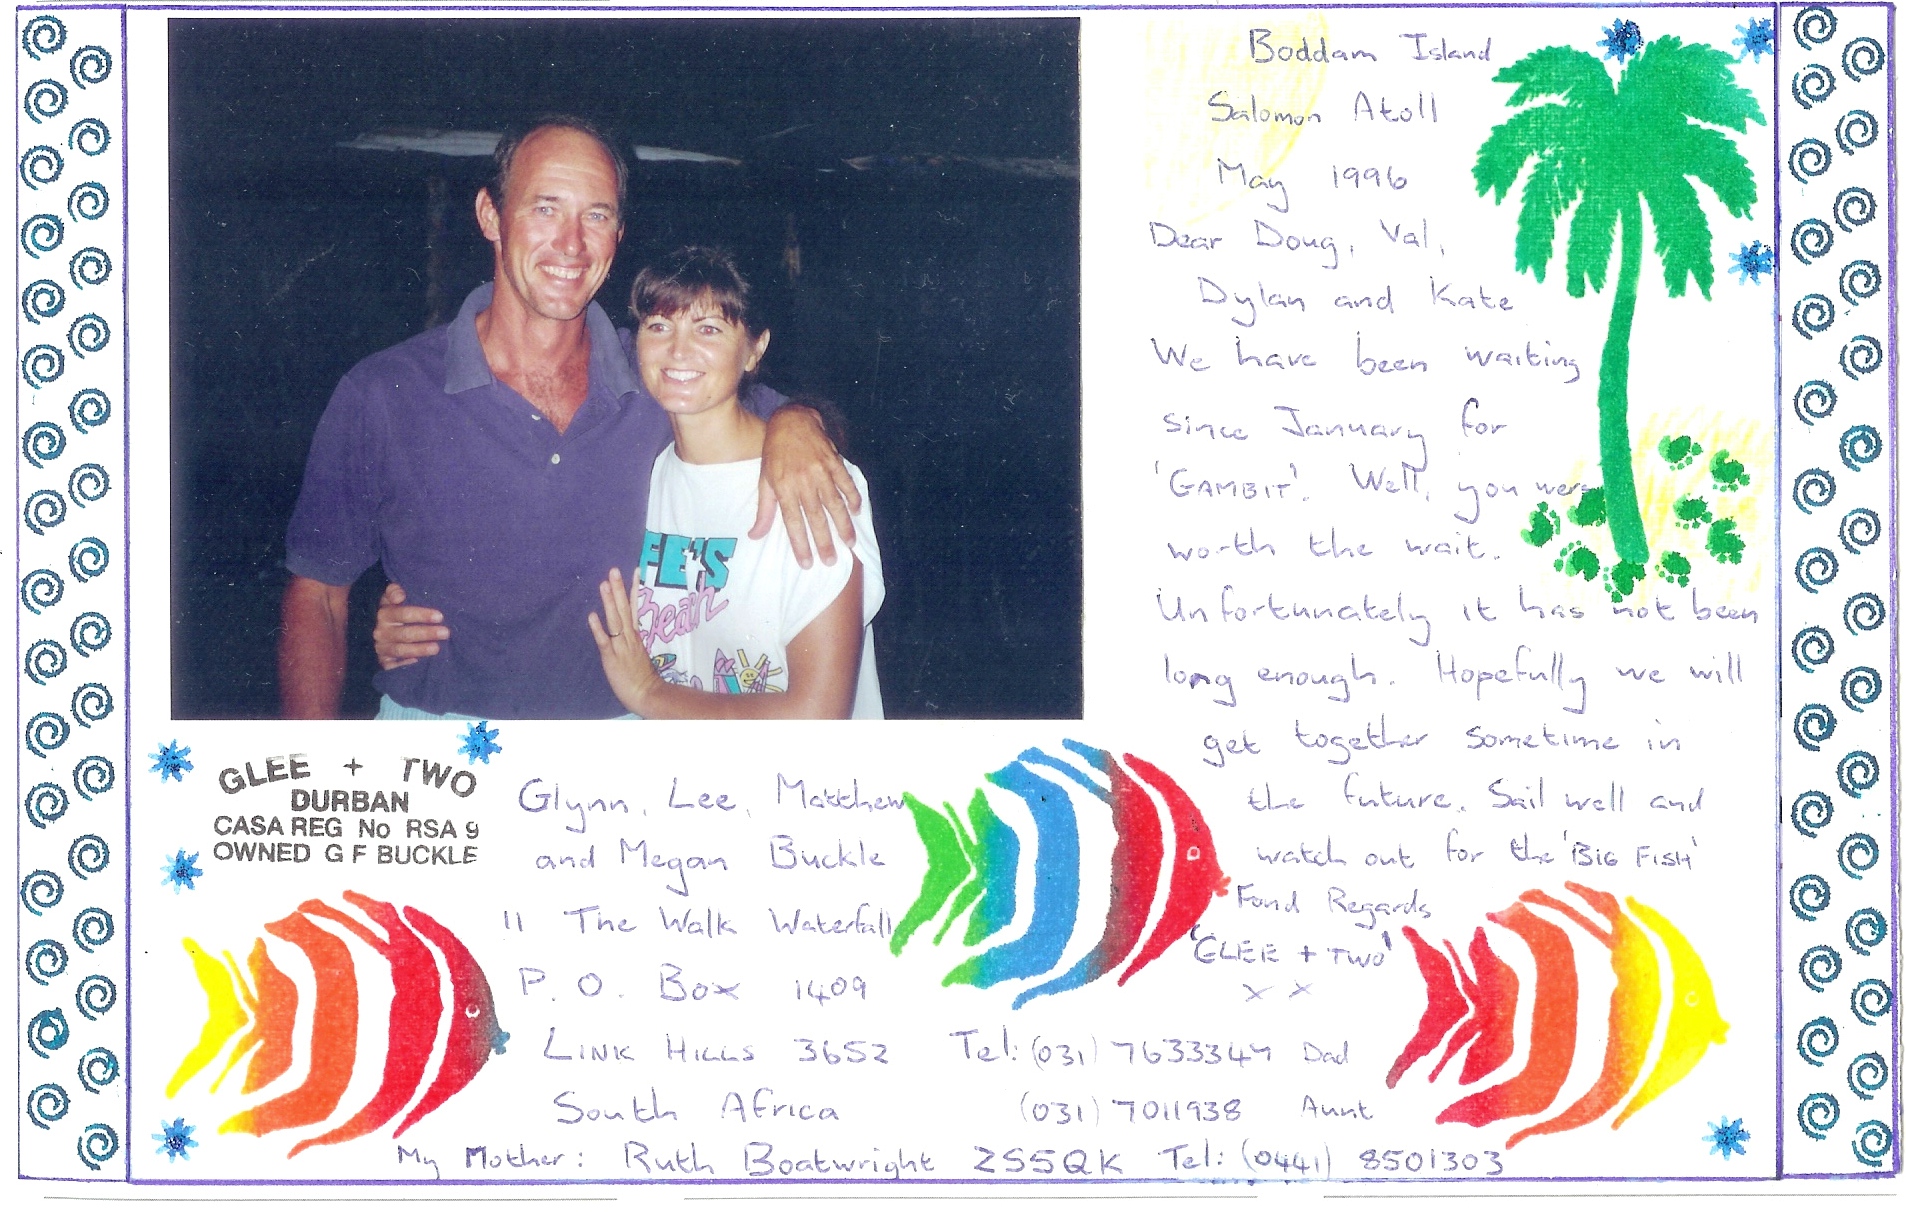 Boddam Island
Salomon Atoll
May 1996
Dear Doug, Val,
Dylan and Kate
We have been waiting
since January for
'GAMBIT'. Well, you were
worth the wait.
Unfortunately it has not been
long enough. Hopefully we will
get together sometime in
the future. Sail well and
watch out for the 'BIG FISH'
Fond Regards
'GLEE + TWO'
x x
FE'S
Beach
GLEE + TWO
DURBAN
CASA REG No RSA 9
OWNED G F BUCKLE
Glynn, Lee, Matthew
and Megan Buckle
11 The Walk Waterfall
P. O. Box 1409
LINK HILLS 3652
South Africa
Tel: (031) 7633347 Dad
(031) 7011938 Aunt
My Mother: Ruth Boatwright ZS5QK Tel: (0441) 8501303